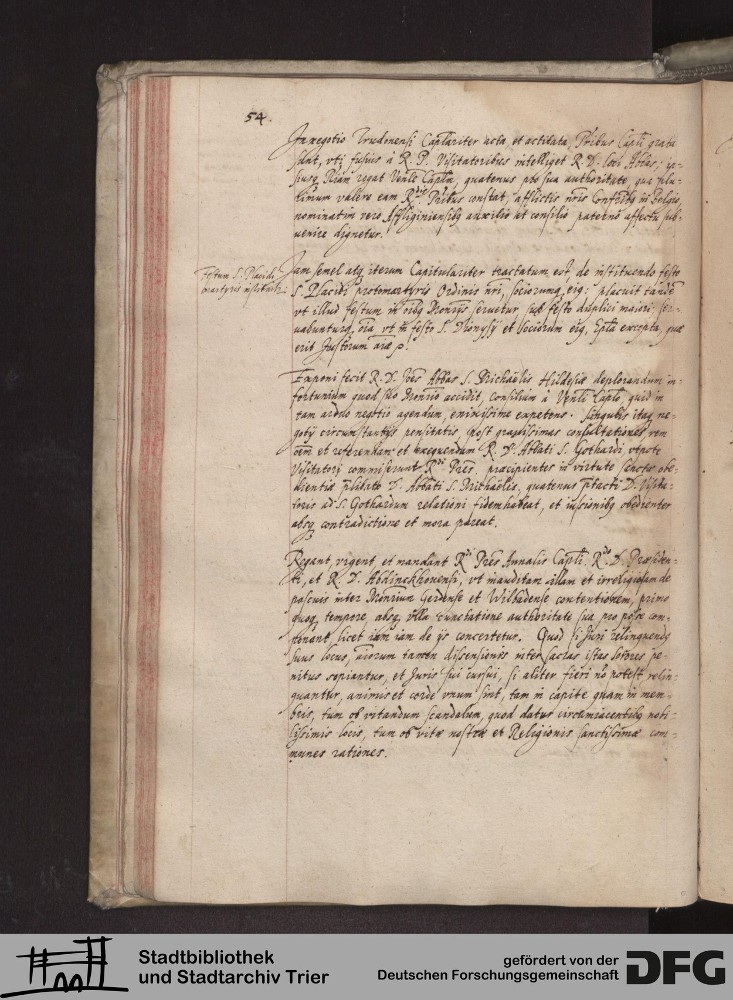 54.
In negotio Trudonensi Caplariter acta et actitata, Pribus Capli grata
sunt, vti fusius à R. P. Visitatoribus intelliget R. D. loci Abbas;
quatenus pro sua authoritate, qua plu-
rimum valere eam R.dis Pribus constat, afflictis nris Confrib9 in Belgio,
nominatim vero Affliginiensib9 auxilio et consilio paterno affectu sub-
uenire dignetur.
Festum S. Placidi
martyris instituitr.
Iam semel atq. iterum Capitulariter tractatum est, de instituendo festo
S. Placidi protomartyris Ordinis nri, sociorumq. eig: placuit tandem
vt illud festum in oib9 Monrijs seruetur sub festo duplici maiori: ser-
uabunturq. oia vt in festo S. Dionysij et sociorum eig. Epla excepta, quæ
erit Justorum aiæ
Exponi fecit R. D. Joes Abbas S. Michaëlis Hildesiæ deplorandum in-
fortunium quod suo Monrio accidit, consilium à Venli Caplo, quid in
tam arduo negotio agendum, enixissime expetens. Singulis itaq. ne-
gotij circumstantijs pensitatis, post grauissimas consultationes, rem
oem et referendam et exequendam R. D. Abbati S. Gothardi vtpote
Visitatori commiserunt R.di Pres, præcipientes in virtute sanctæ obe-
dientiæ plibato D. Abbati S. Michaëlis, quatenus ptacti D. Visita-
toris ad S. Gothardum relationi fidem habeat, et iussionib9 obedienter
absq. contradictione et mora pareat.
Rogant, vigent, et mandant R.di Pres Annalis Capli R.do D. Præsiden-
ti, et R. D. Abdinckhouensi, vt inauditam illam et irreligiosam de
pascuis inter Monrium Gerdense et Wilbadense contentionem, primo
quoq. tempore, absq. vlla cunctatione authoritate sua pro posse con-
ponant, licet iam iam de ijs concertetur. Quod si Juri relinquendg
suus locus, aiorum tamen dissensiones inter sacras istas sorores pe-
nitus sopiantur, et Juris sui cursui, si aliter fieri nõ potest relin-
quantur, animis et corde vnum sint, tam in capite quam in mem-
bris, tum ob vitandum scandalum, quod datur circumiacentib9 nobi-
lissimis locis, tum ob vitæ nostræ et Religionis sanctissimæ com-
munes rationes.
Stadtbibliothek
und Stadtarchiv Trier
gefördert von der
Deutschen Forschungsgemeinschaft
DFG